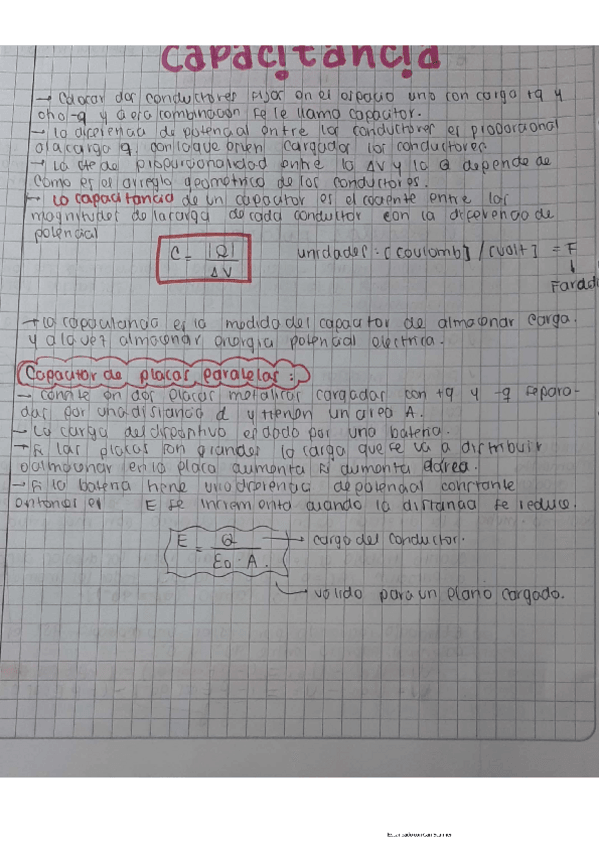 Capacitancia
→ Colocar dos conductores fijos en el espacio uno con carga +q y
otro -q y a esa combinación se le llama capacitor.
→ la diferencia de potencial entre los conductores es proporcional
a la carga q. con la que esten cargados los conductores
→ La cte de proporcionalidad entre la ΔV y la Q depende de
como es el arreglo geometrico de los conductores.
→ La capacitancia de un capacitor es el cociente entre las
magnitudes de la carga de cada conductor con la diferencia de
potencial
C = |Q| / ΔV unidades: [Coulomb] / [Volt] = F
↓
→ la capacitancia es la medida del capacitor de almacenar carga.
y a la vez almacenar energia potencial electrica.
Capacitor de placas paralelas:
→ consite en dos placas metalicas cargadas con +q y -q separa-
das por una distancia d y tienen un area A.
→ La carga del dispositivo es dado por una bateria.
→ Si las placas son grandes la carga que se va a distribuir
o almacenar en la placa aumenta si aumenta el area.
→ Si la bateria tiene una diferencia de potencial constante
entonces el E se incrementa cuando la distancia se reduce.
E = Q / Eo · A. → carga del conductor.
→ valido para un plano cargado.
Escaneado con CamScanner